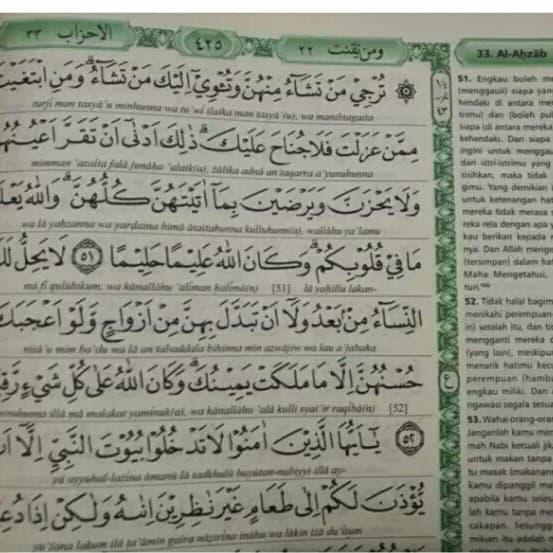 الاحزاب ٣٣
٤٢٥
ومن يقنت ٢٢
تُرْجِيْ مَنْ تَشَاۤءُ مِنْهُنَّ وَتُـْٔوِيْٓ اِلَيْكَ مَنْ تَشَاۤءُۗ وَمَنِ ابْتَغَيْتَ
turjī man tasyā'u minhunna wa tu'wī ilaika man tasyā'(u), wa manibtagaita
مِمَّنْ عَزَلْتَ فَلَا جُنَاحَ عَلَيْكَۗ ذٰلِكَ اَدْنٰٓى اَنْ تَقَرَّ اَعْيُنُهُنَّ
mimman 'azalta falā junāḥa 'alaik(a), żālika adnā an taqarra a'yunuhunna
وَلَا يَحْزَنَّ وَيَرْضَيْنَ بِمَآ اٰتَيْتَهُنَّ كُلُّهُنَّۗ وَاللّٰهُ يَعْلَمُ
wa lā yaḥzanna wa yarḍaina bimā ātaitahunna kulluhunn(a), wallāhu ya'lamu
مَا فِيْ قُلُوْبِكُمْۗ وَكَانَ اللّٰهُ عَلِيْمًا حَلِيْمًا ﴿٥١﴾ لَا يَحِلُّ لَكَ
mā fī qulūbikum, wa kānallāhu 'alīman ḥalīmā(n) [51] lā yaḥillu lakan-
النِّسَاۤءُ مِنْۢ بَعْدُ وَلَآ اَنْ تَبَدَّلَ بِهِنَّ مِنْ اَزْوَاجٍ وَّلَوْ اَعْجَبَكَ
nisā'u mim ba'du wa lā an tabaddala bihinna min azwājiw wa lau a'jabaka
حُسْنُهُنَّ اِلَّا مَا مَلَكَتْ يَمِيْنُكَۗ وَكَانَ اللّٰهُ عَلٰى كُلِّ شَيْءٍ رَّقِيْبًا
ḥusnuhunna illā mā malakat yamīnuk(a), wa kānallāhu 'alā kulli syai'ir raqībā(n) [52]
﴿٥٢﴾ يٰٓاَيُّهَا الَّذِيْنَ اٰمَنُوْا لَا تَدْخُلُوْا بُيُوْتَ النَّبِيِّ اِلَّآ اَنْ
yā ayyuhal-lażīna āmanū lā tadkhulū buyūtan-nabiyyi illā ay-
يُّؤْذَنَ لَكُمْ اِلٰى طَعَامٍ غَيْرَ نٰظِرِيْنَ اِنٰىهُ وَلٰكِنْ اِذَا دُعِ
yu'żana lakum ilā ṭa'āmin gaira nāẓirīna ināhu wa lākin iżā du'ītum
33. Al-Aḥzāb
51. Engkau boleh m
(menggauli) siapa yan
hendaki di antara mer
trimu) dan (boleh pul
siapa (di antara mereka
kehendaki. Dan siapa
ingini untuk mengga
dari istri-istrimu yang
sisihkan, maka tidak
gimu. Yang demikian
untuk ketenangan hat
mereka tidak merasa
reka rela dengan apa y
kau berikan kepada r
nya. Dan Allah menge
(tersimpan) dalam hat
Maha Mengetahui,
tun.
52. Tidak halal bagim
menikahi perempuan
in) setelah itu, dan t
mengganti mereka d
(yang lain), meskipu
menarik hatimu kec
perempuan (hamb
engkau miliki. Dan
ngawasi segala sesua
53. Wahai orang-oran
Janganlah kamu mem
mah Nabi kecuali jik
untuk makan tanpa
tu masak (makanann
kamu dipanggil ma
apabila kamu seles
lah kamu tanpa me
cakapan. Sesungg
mikian itu adalah